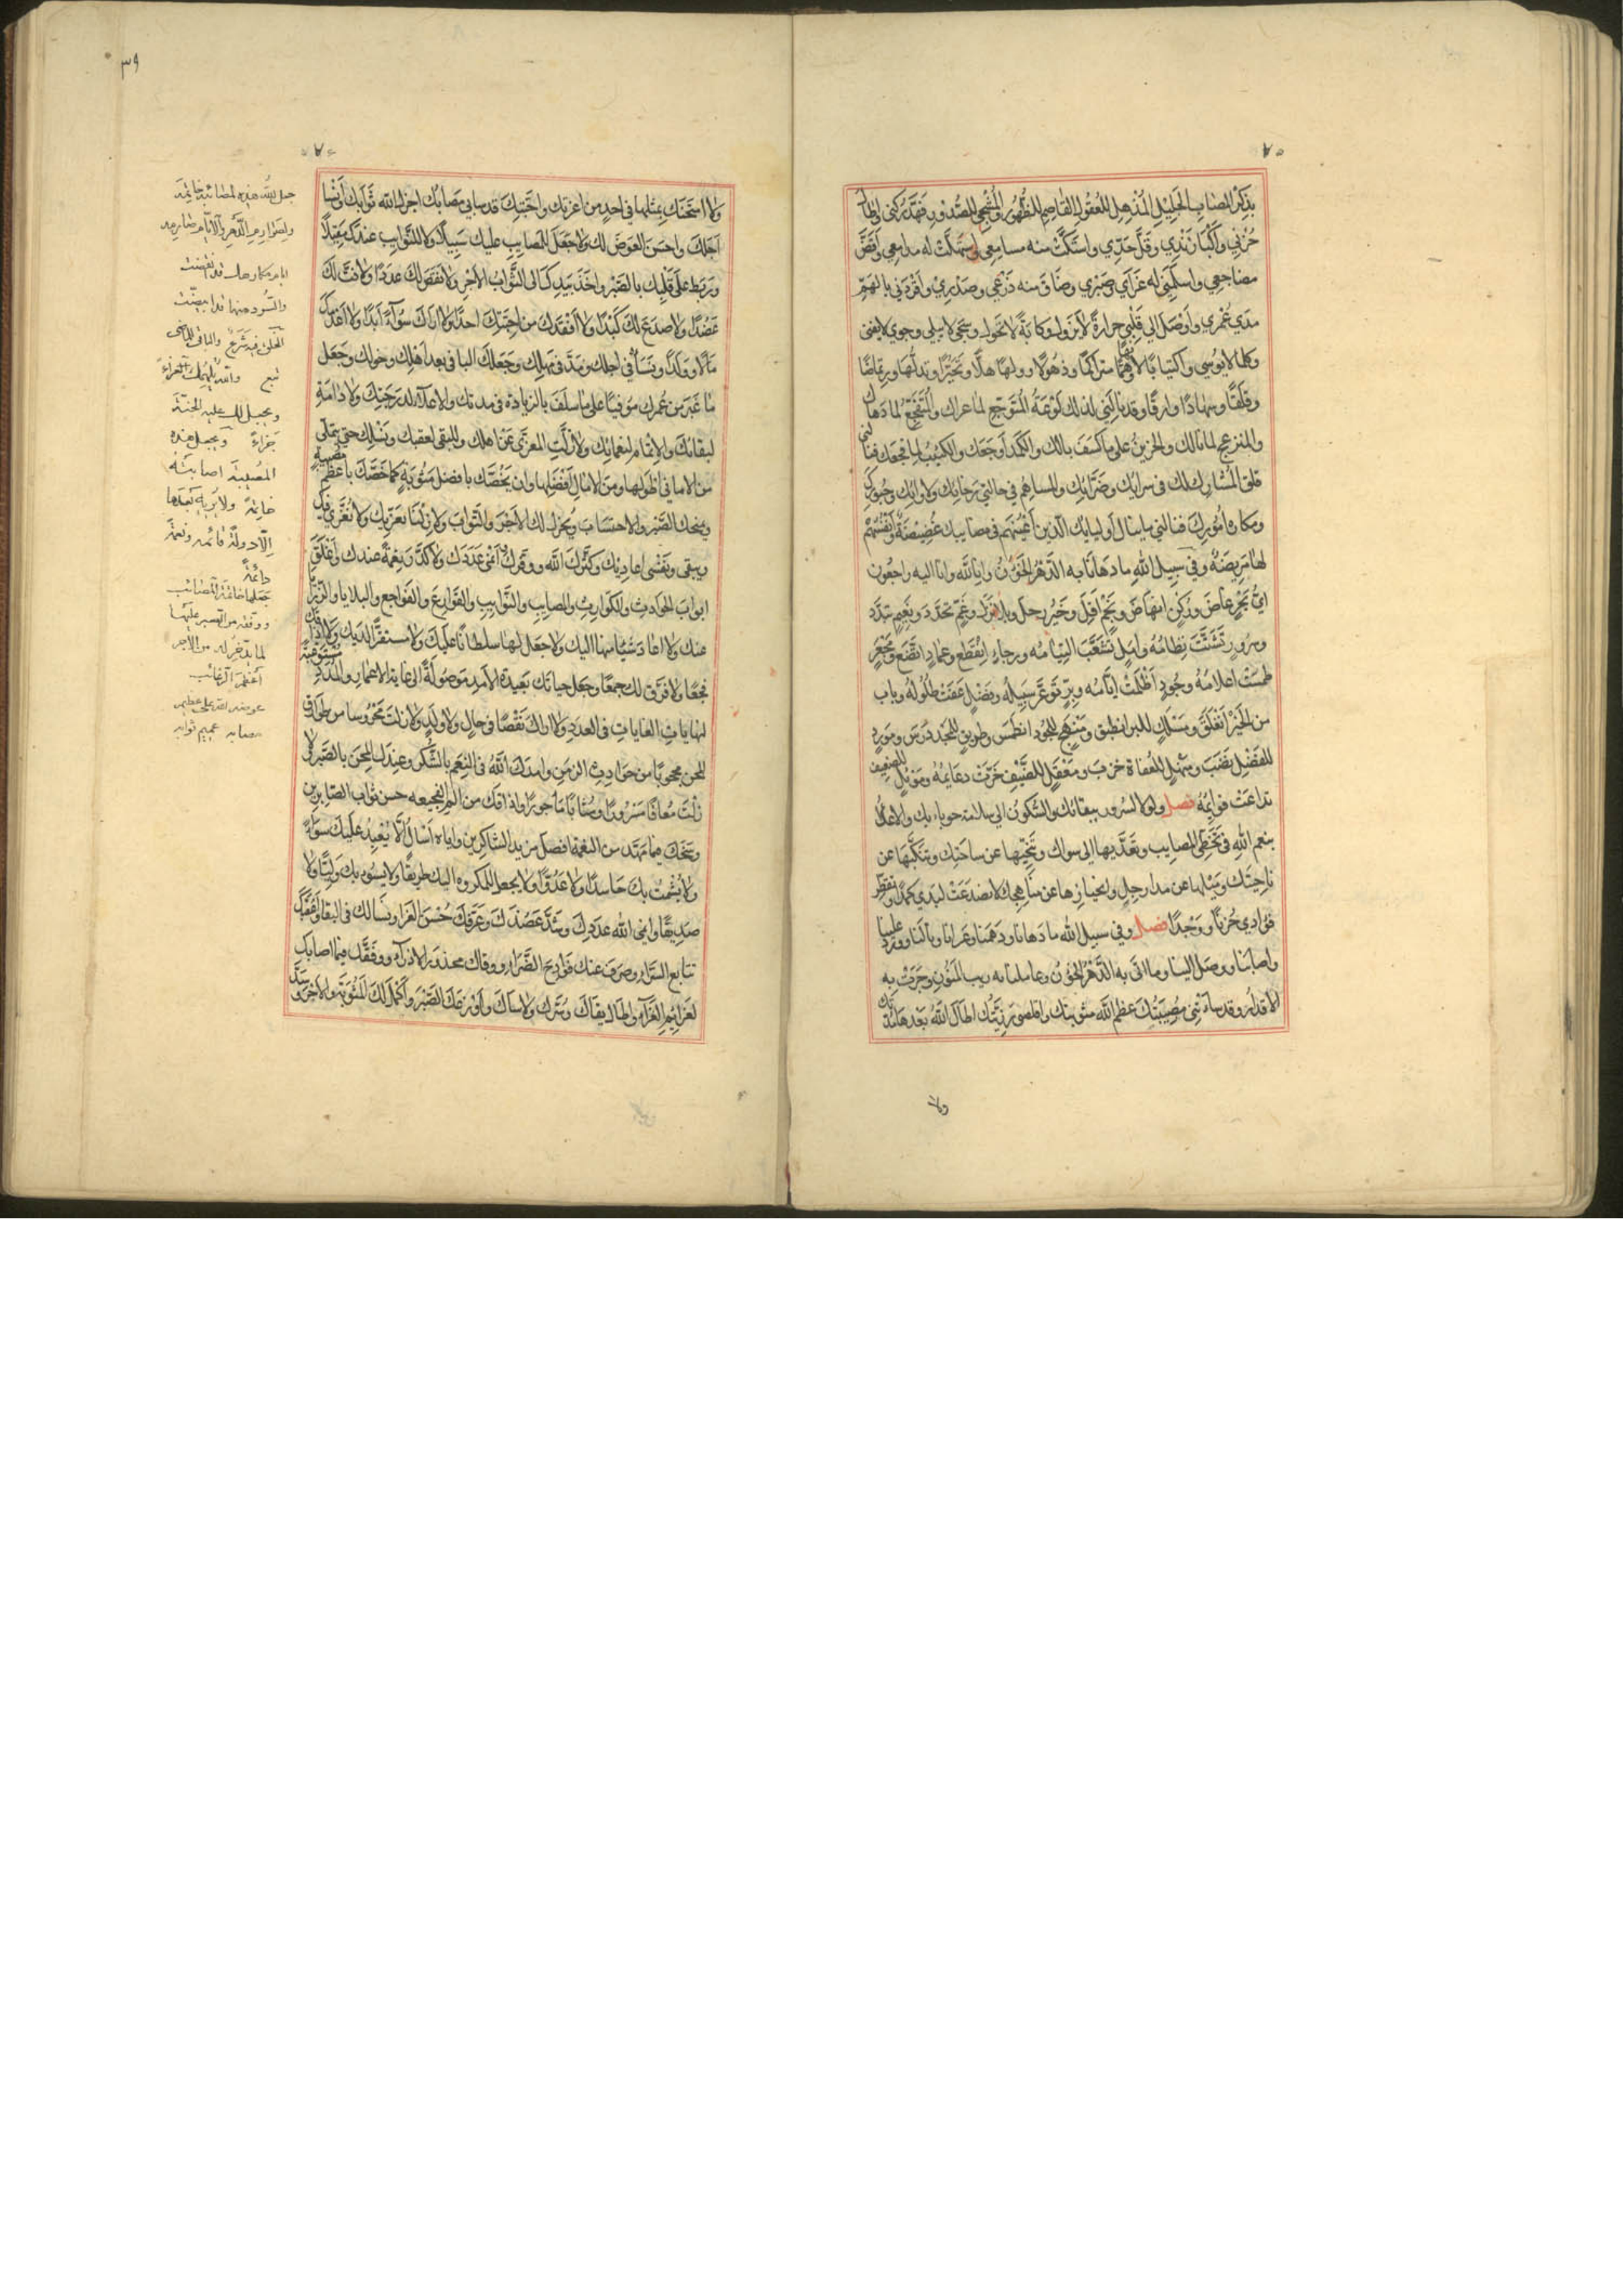 بذكر المصاب الجليل المذهل للعقول القاصم للظهور والمشجي للصدور فهد ركني واطال
حزني واكبا زندي وفل حدي واستكت منه مسامعي واستهلت له مدامعي واقض
مضاجعي واسلمني له عزاي وصبري وضاق منه ذرعي وصدري وافردني بالهم
مدي عمري واوصل الي قلبي حرارة لا تزول وكابة لا تحول وشجي لا يبلي وجوي لا يفني
وكلما لا يوسي واكتيابا لا وهما متراكما وذهولا وولها هلا وتحيرا وتدلها وارتماضا
وقلقا وسهادا وارقا وقد نالتني لذلك لوعة المتوجع لما عراك والمتفجع لما دهاك
والمنزعج لما نالك والحزين علي ما كسف بالك والكمد لوجعك والكئيب لما فجعك فنالني
قلق المشارك لك في سرايك وضرايك والمساهم في حالتي رخايك ولاوايك ومحبوبك
ومكاره امورك فنالني ما ينال اوليايك الذين اعينهم في مصايبك غضيضة وانفسهم
لها مريضة وفي سبيل الله ما دهانا به الدهر الخؤن وانا لله وانا اليه راجعون
اي بحر غاض وركن انهاض ونجم افل وخير رحل وبلا نزل وغم تجدد ونعيم تبدد
وسرور تشتت نظامه وامل تشعب التيامه ورجاء انقطع وعماد انقضع
طمست اعلامه وجود اظلمت ايامه وبر توعر سبيله وفضل عفت طلوله وباب
من الخير انغلق ومسلك للبر انطبق ومنهج للجود انطمس وطريق للمجد درس ومورد
للفضل نضب ومنهل للعفاة خرب ومعقل للضيف خرت دعايمه وموئل للضعيف
تداعت قوايمه فصل ولولا السرور ببقائك والسكون الي سلامة حوباءيك والاعتداد
بنعم الله في تخطي المصايب وتعديها الي سواك وتنحيها عن ساحتك وتنكبها عن
ناحيتك وميلها عن مدارجك وانحيازها عن مناهجك لانصدعت كبدي كمدا وتفطر
فؤادي حزنا ووجدا فصل وفي سبيل الله ما دهانا ودهمنا وعرانا ونالنا وورد علينا
واصابنا ووصل الينا وما اتي به الدهر الخؤن وعاملنا به ريب المنون وجرت به
الاقدار وقد ساءتني مصيبتك عظم الله مثوبتك وامضني رزيتك اطال الله بعدها مدتك
ولا
ولا امتحنك بمثلها في احد من اعزتك واحبتك قد ساني مصابك اجزل الله ثوابك وانسا
اجلك واحسن العوض لك ولا جعل للمصايب عليك سبيلا ولا للنوايب عندك مقيلا
وربط علي قلبك بالصبر واخذ بيدك الي الثواب والاجر ولا نقص لك عددا ولا فت لك
عضدا ولا صدع لك كبدا ولا افقدك من احبتك احدا ولا اراك سوا ابدا ولا اعدمك
مالا وولدا ونسأ في اجلك ومد في مهلك وجعلك الباقي بعد اهلك وخولك وجعل
ما غبر من عمرك موفيا علي ما سلف بالزيادة في مدتك والاعلاء لدرجتك والادامة
لبقائك والاتمام لنعمائك ولا زلت المعزي عن اهلك والمبقي لعقبك ونسلك حتي تملي
من الاماني اطولها ومن الامال افضلها وان يخصك بافضل مثوبة كما خصك باعظم مصيبة
ويمنحك الصبر والاحتساب ويجزل لك الاجر والثواب ولا زلنا نعزيك ولا نعزي فيك
وتبقي وتفني اعاديك وكثرك الله ووفرك وانمي عددك ولا كدر نعمة عندك واغلق
ابواب الحوادث والكوارث والمصايب والنوايب والقوارع والفواجع والبلايا والرزايا
عنك ولا اعاد شيئا منها اليك ولا جعل لها سلطانا عليك ولا مستقرا لديك ولا اذاقك
فجعا ولا فرق لك جمعا وجعل حياتك بعيدة الامد موصولة الي غاية الاعمار والمدد مستوعبة
لنهايات الغايات في العدد ولا اراك نقصا في حال ولا ولد ولا زلت محروسا من طوارق
المحن محجوبا من حوادث الزمن وامدك الله في النعم بالشكر وعند المحن بالصبر لا
زلت معافا مسرورا ومثابا ماجورا واذاقك من الم الفجيعة حسن ثواب الصابرين
ومنحك فيما تجدد من النعمة افضل مزيد الشاكرين واياه اسال الا يعيد عليك سواة
ولا يشمت بك حاسدا ولا عدوا ولا يجعل للمكروه اليك طريقا ولا يسوء بك وليا ولا
صديقا وانمي الله عددك وشد عضدك وعرفك حسن العزا ونسالك في البقا
تتابع السراء وصرف عنك فوادح الضراء ووقاك محذور الاذي ووفقك فيما اصابك
لعزائم العزا واطال بقاك وسرك ولا ساك واوزعك الصبر واكمل لك المثوبة والاجر وسد
جعل الله هذه المصائب خاتمة
والسود منها قد ابيضت
ويجعل لك عليه الجنة
جزاء ويجعل هذه
المصيبة اصابته
خاتمة ولا يريه بعدها
الا دولة قائمة ونعمة
دائمة
جعلها خاتمة المصائب
ووفقه من الصبر عليها
لما يدخر له من الاجر
اعظم الرغائب
عوضه الله علي عظيم
مصابه عميم ثوابه